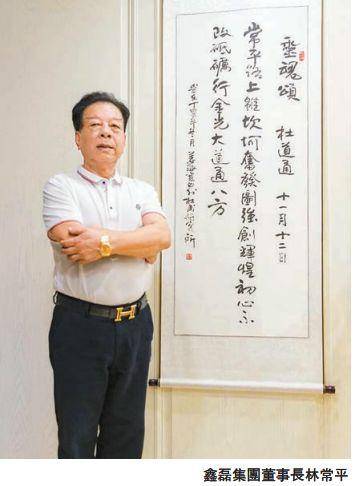 垂魂頌 杜道通 十一月十二日
常平路上雖坎坷奮發圖強創輝煌初心不
改砥礪行金光大道通八方
鑫磊集團董事長林常平